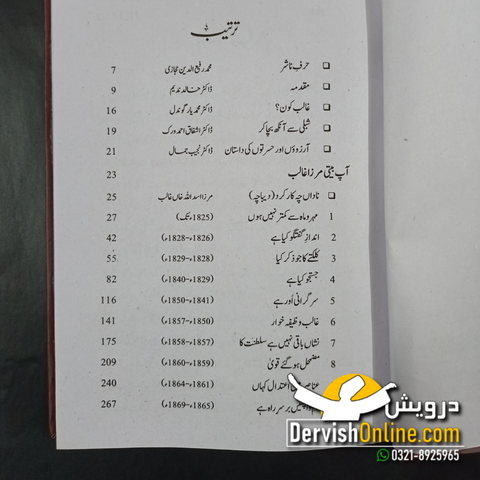 ترتیب
❏ حرفِ ناشر محمد رفیع الدین حجازی 7
❏ مقدمہ ڈاکٹر خالد ندیم 9
❏ غالب کون؟ ڈاکٹر محمد یار گوندل 16
❏ شبلی سے آنکھ بچا کر ڈاکٹر اشفاق احمد ورک 19
❏ آرزوؤں اور حسرتوں کی داستان ڈاکٹر نجیب جمال 21
آپ بیتی مرزا غالب 23
❏ ناداں چہ کار کرد (دیباچہ) مرزا اسد اللہ خاں غالب 25
1 مہر و ماہ سے کمتر نہیں ہوں (1825ء تک) 27
2 اندازِ گفتگو کیا ہے (1826ء-1828ء) 42
3 کلکتے کا جو ذکر کیا (1828ء-1829ء) 55
4 جستجو کیا ہے (1829ء-1840ء) 82
5 سرگرانی اور ہے (1841ء-1850ء) 116
6 غالب وظیفہ خوار (1850ء-1857ء) 141
7 نشاں باقی نہیں ہے سلطنت کا (1857ء-1858ء) 175
8 مضمحل ہو گئے قویٰ (1859ء-1860ء) 209
عناصر میں اعتدال کہاں (1861ء-1864ء) 240
بر سرِ راہ ہے (1865ء-1869ء) 267
درویش
DervishOnline.com
0321-8925965